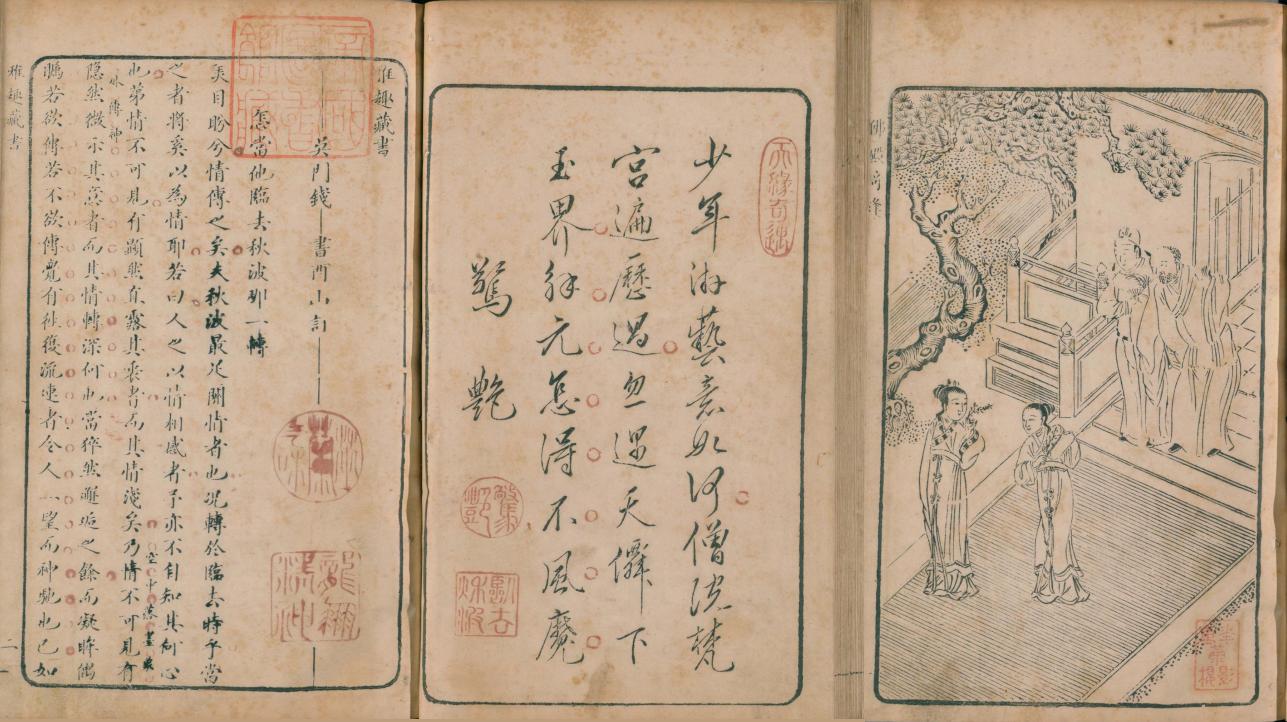 佛殿奇逢
天緣奇遇
少年游藝意如何僧院梵
宮遍歷過忽遇天僊下
玉界解元怎得不風魔
驚艷
驚艷
臨去秋波
雅趣藏書
吳門錢 書酉山訂
怎當他臨去秋波那一轉
美目盼兮情傳之矣夫秋波最足關情者也況轉於臨去時乎當
之者將奚以為情耶若曰人之以情相感者予亦不自知其何心
也第情不可見有顯然直露其衷者而其情淺矣乃情不可見有
隱然微示其意者而其情轉深何也當猝然邂逅之餘而凝眸偶
矚若欲傳若不欲傳覺有往復流連者令人一望而神馳也已如
雅趣藏書
二